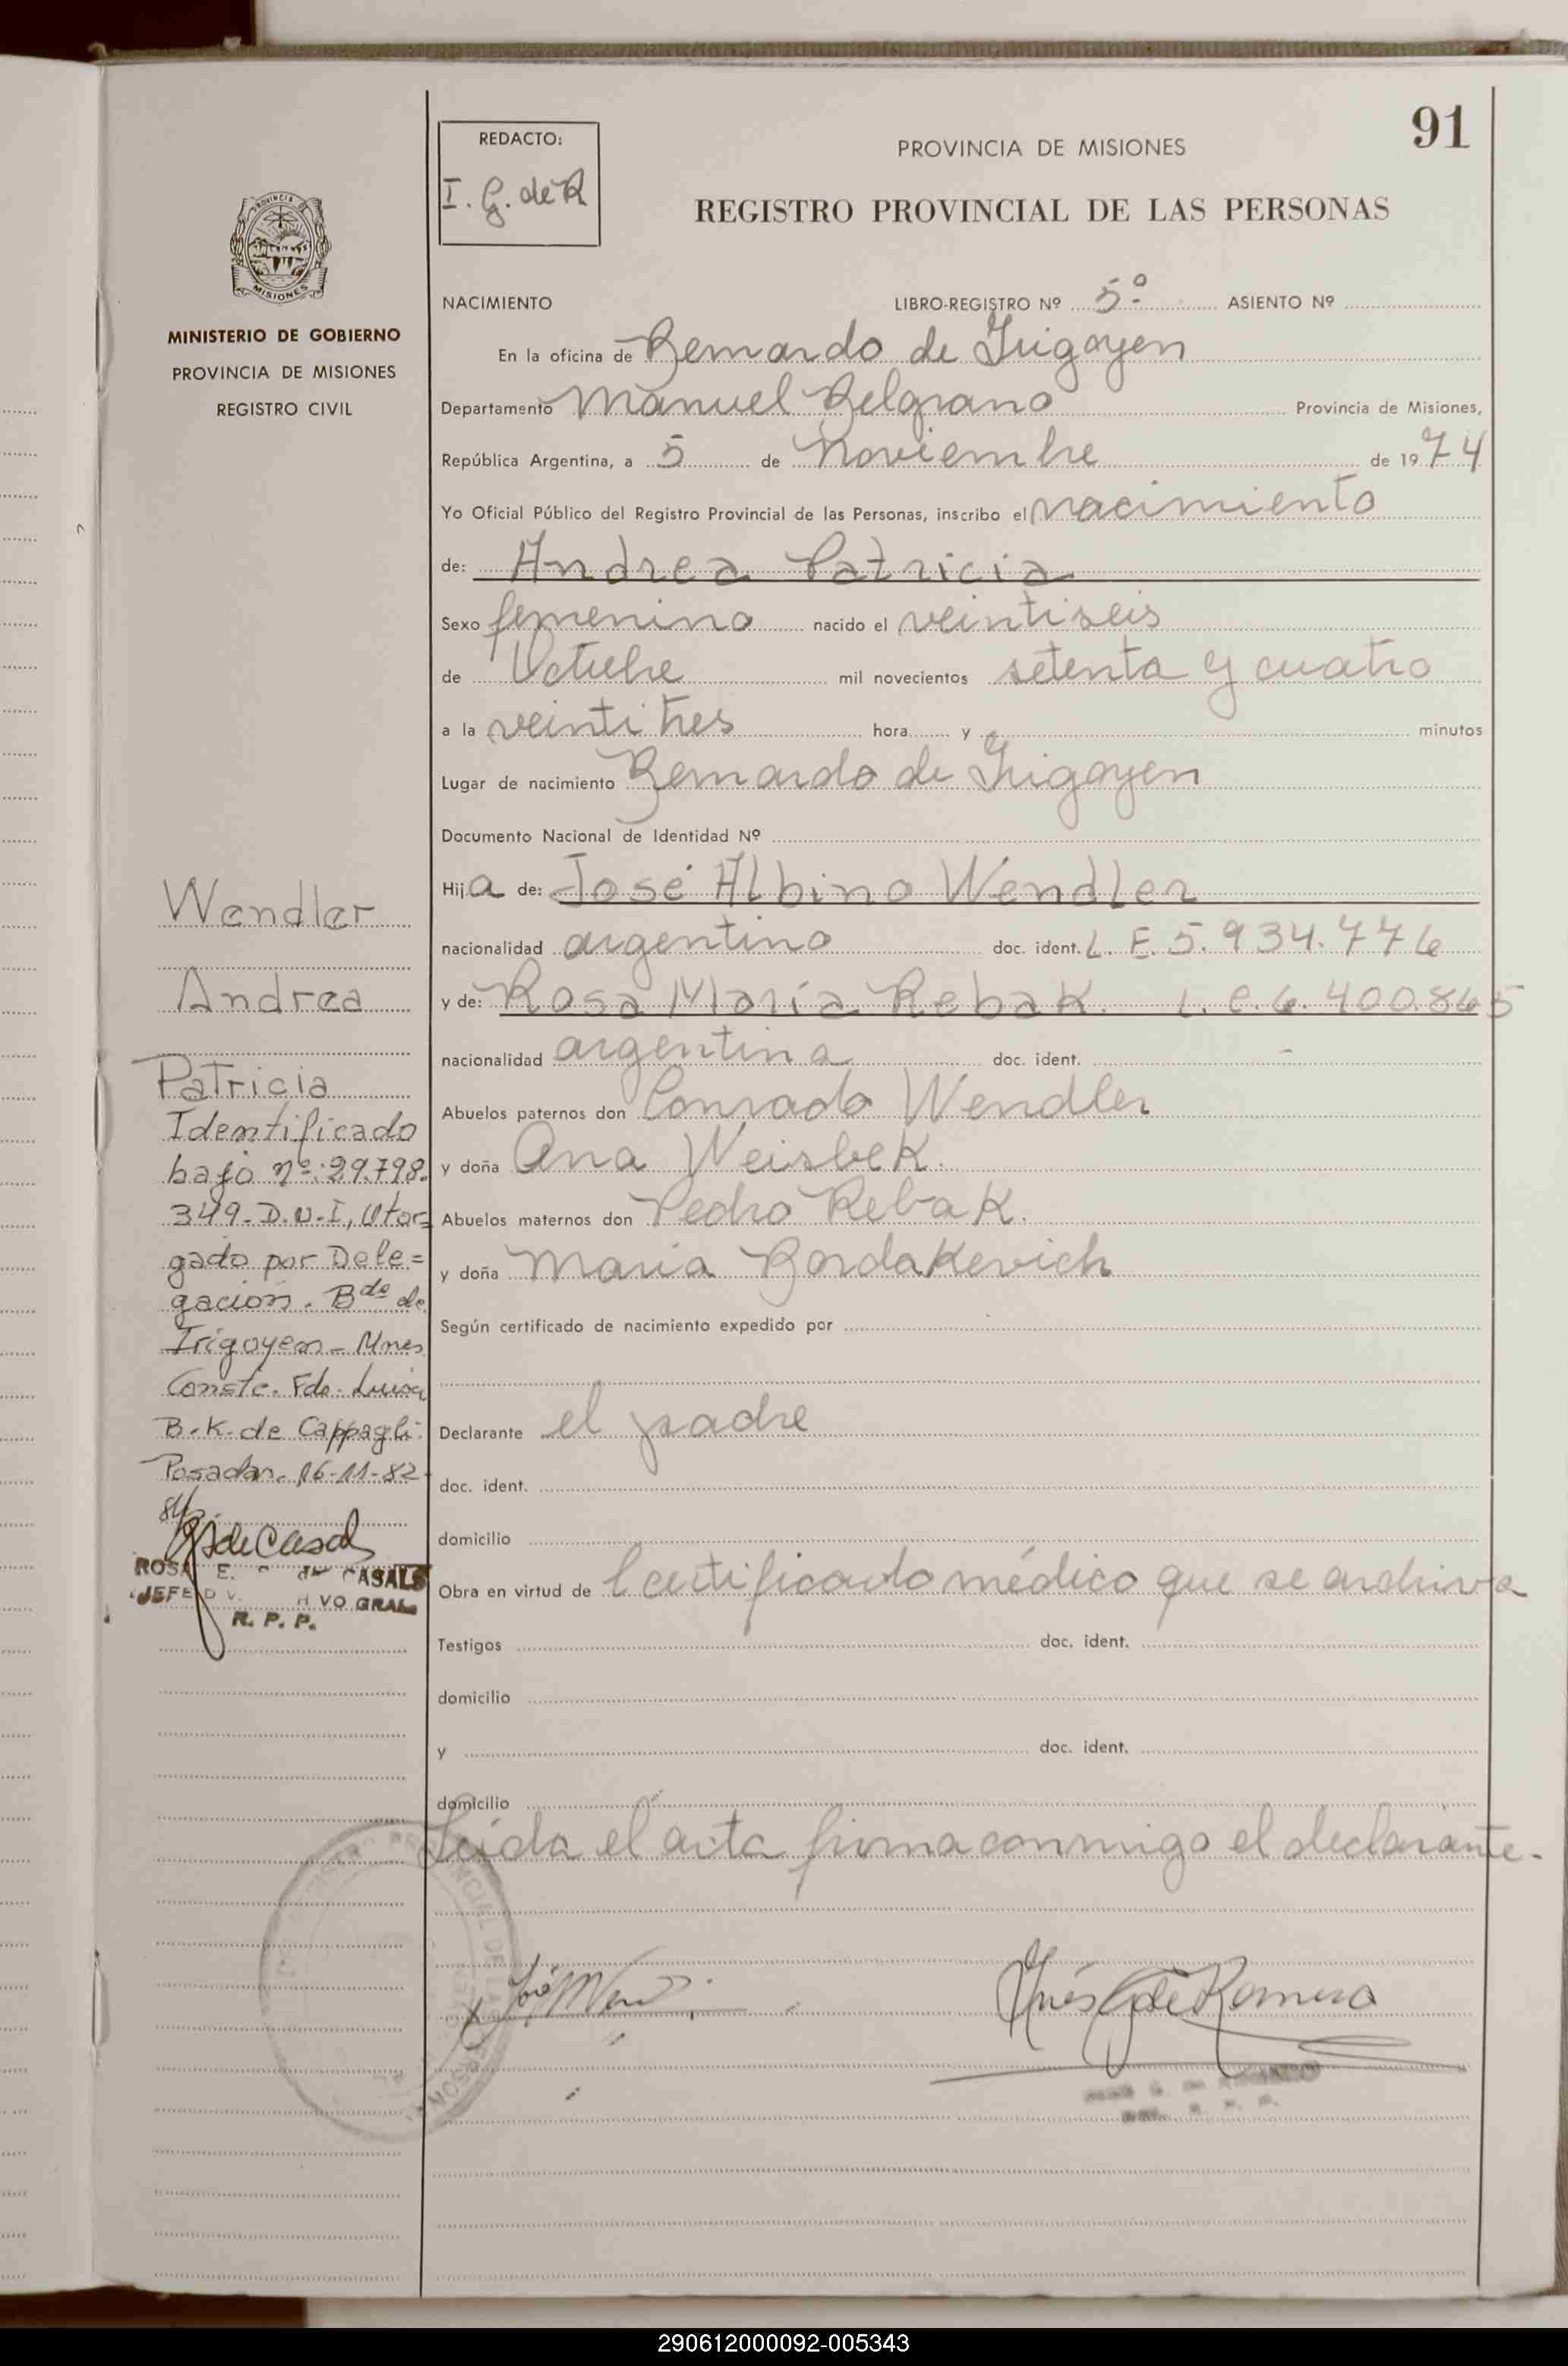 91
REDACTO:
I. G. de R
PROVINCIA DE MISIONES
REGISTRO PROVINCIAL DE LAS PERSONAS
PROVINCIA DE
MISIONES
MINISTERIO DE GOBIERNO
PROVINCIA DE MISIONES
REGISTRO CIVIL
NACIMIENTO LIBRO-REGISTRO Nº 5º ASIENTO Nº
En la oficina de Bernardo de Irigoyen
Departamento Manuel Belgrano Provincia de Misiones,
República Argentina, a 5 de Noviembre de 1974
Yo Oficial Público del Registro Provincial de las Personas, inscribo el nacimiento
de: Andrea Patricia
Sexo femenino nacido el veintiseis
de Octubre mil novecientos setenta y cuatro
a la veintitres hora y minutos
Lugar de nacimiento Bernardo de Irigoyen
Documento Nacional de Identidad Nº
Hija de: José Albino Wendler
nacionalidad argentino doc. ident. L. E. 5.934.776
y de: Rosa María Rebak. L. C. 6.400.865
nacionalidad argentina doc. ident. -
Abuelos paternos don Conrado Wendler
y doña Ana Weisbek.
Abuelos maternos don Pedro Rebak.
y doña Maria Bordakevich
Según certificado de nacimiento expedido por
Declarante el padre
doc. ident.
domicilio
Obra en virtud de Certificado médico que se archiva
Testigos doc. ident.
domicilio
y doc. ident.
domicilio
Leída el acta firma conmigo el declarante.-
Inés G de Romero
Wendler
Andrea
Patricia
Identificado
bajo nº: 29.798.
349. D.N.I, Otor=
gado por Dele=
gación. Bdo de
Irigoyen - Mnes
Conste. Fdo. Luisa
B. K. de Cappagli.
Posadas. 16-11-82
de Casals
ROSA E. de CASALS
JEFE VO GRAL.
R. P. P.
290612000092-005343